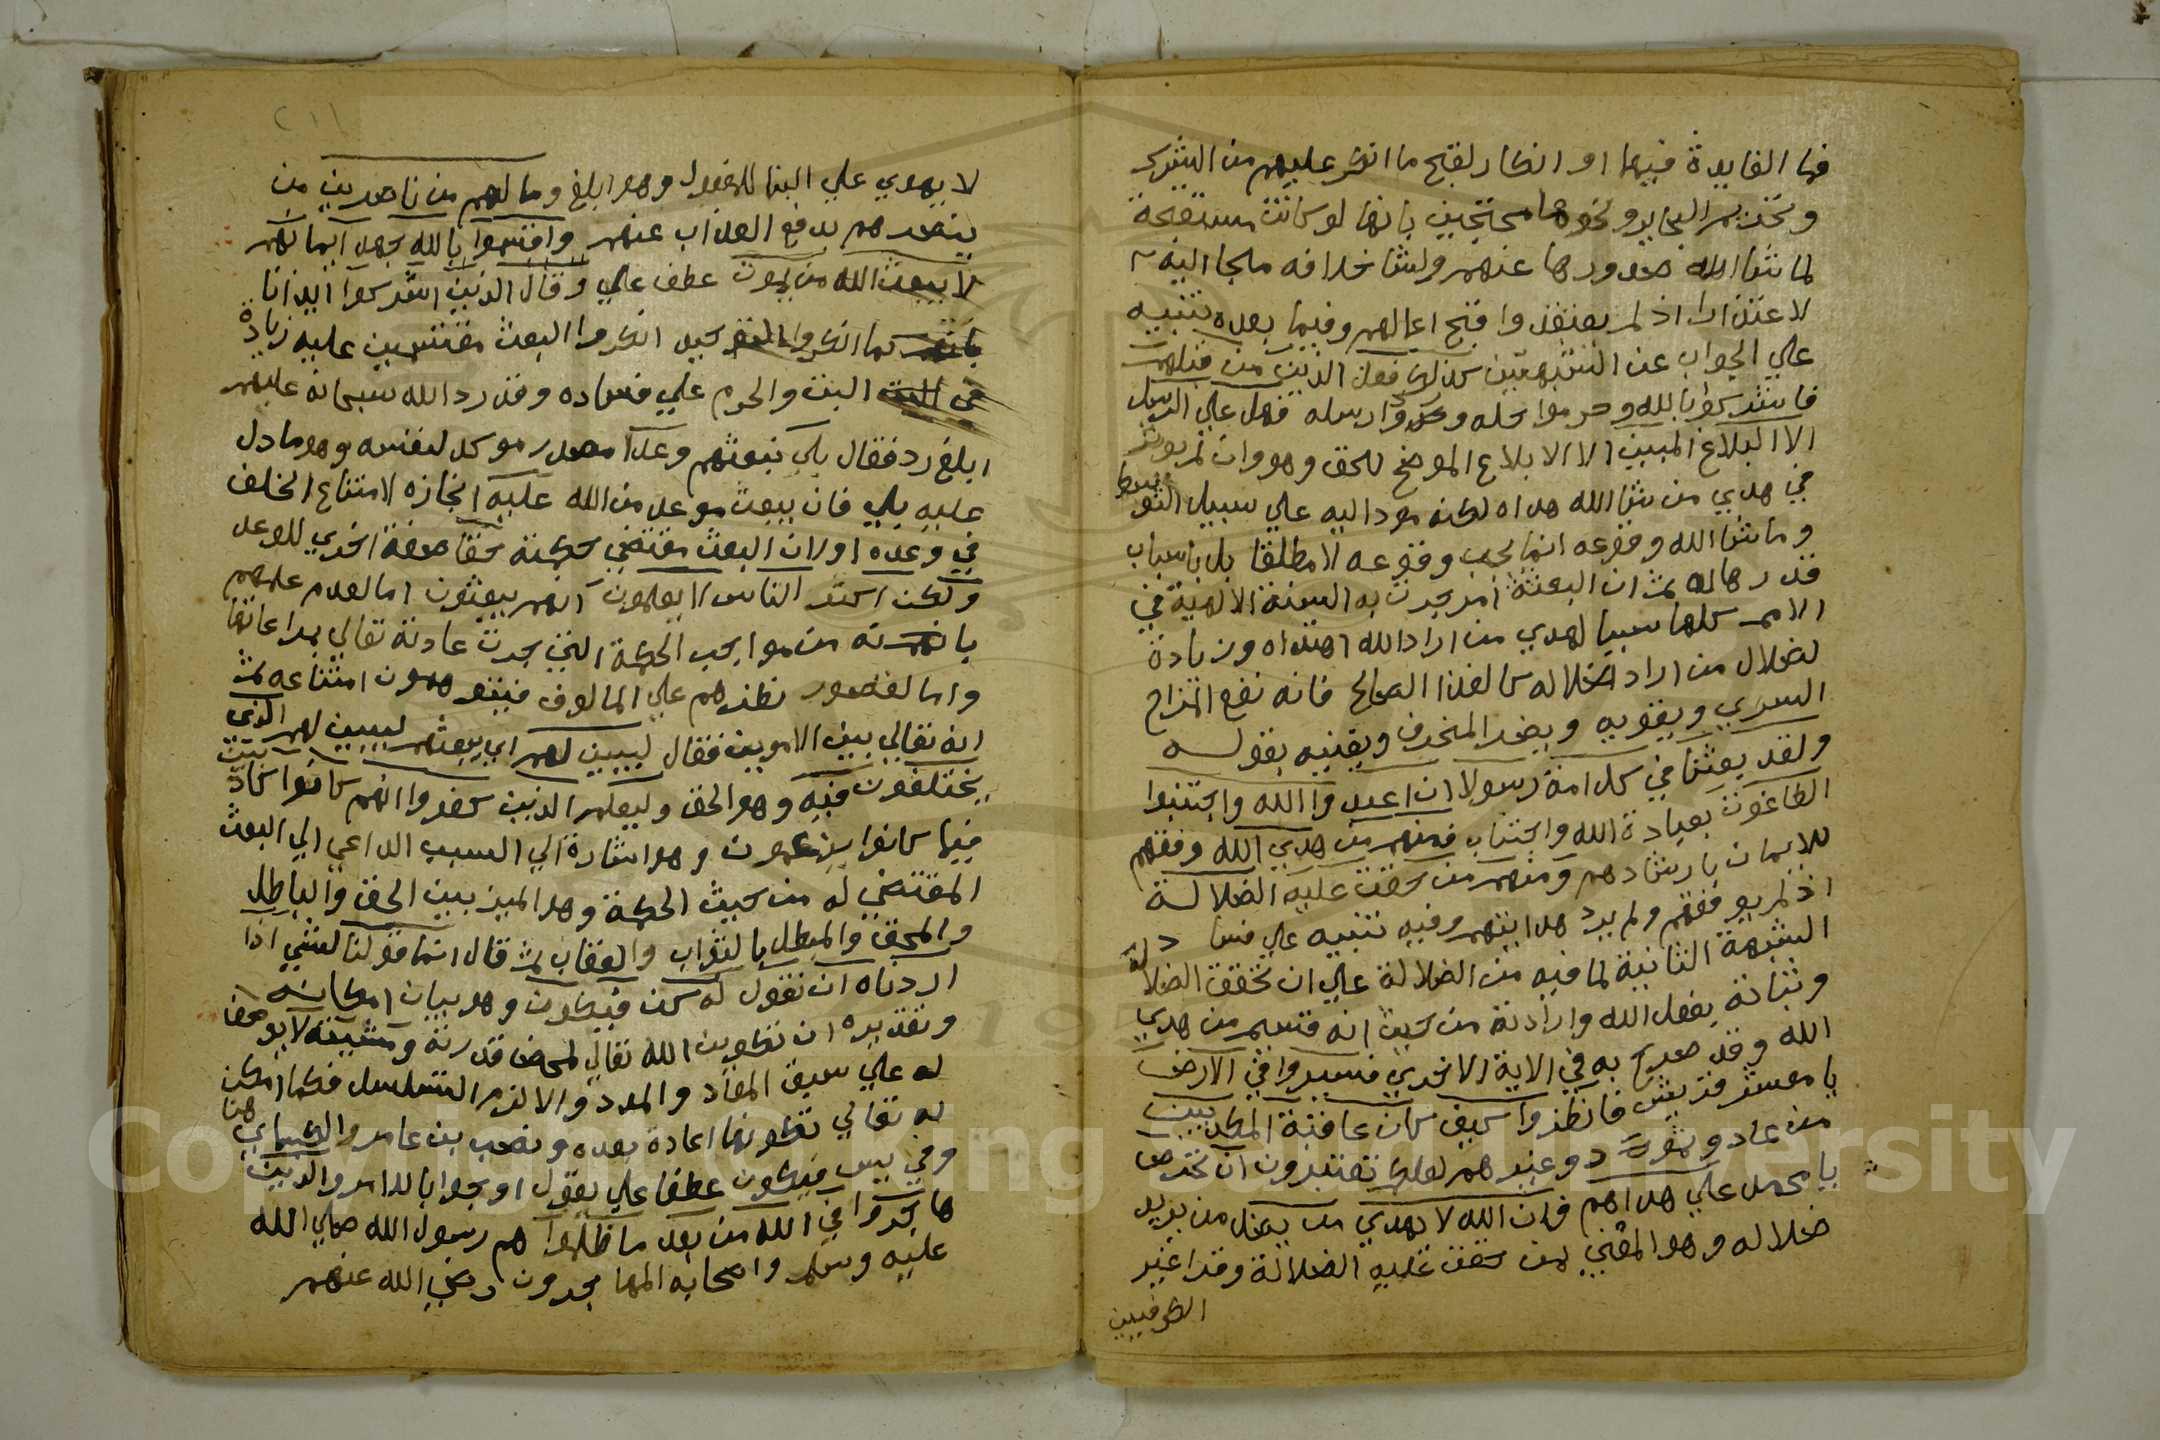 فما الفايدة فيها او انكار لقبح ما انكر عليهم من الشرك
وتحريم البحاير ونحوها محتجين بانها لو كانت مستقبحة
لما شا الله صدورها عنهم ولشا خلافه ملجا اليه
لا عتذارا اذ لم يعتقدوا قبح اعمالهم وفيما بعده تنبيه
علي الجواب عن الشبهتين كذلك فعل الذين من قبلهم
فاشركوا بالله وحرموا حله وردوا رسله فهل علي الرسل
الا البلاغ المبين الا الابلاغ الموضح للحق وهو وان لم يوثر
في هدي من شا الله هداه لكنه مود اليه علي سبيل التوسط
وما شا الله وقوعه انما يجب وقوعه لا مطلقا بل باسباب
قدرها له ثم ان البعثة امر جرت به السنة الالهية في
الامم كلها سببا لهدي من اراد الله اهتداه وزيادة
لضلال من اراد ضلاله كالغذا الصالح فانه نفع المزاج
السوي ويقويه ويضر المنحرف ويفنيه بقوله
ولقد بعثنا في كل امة رسولا ان اعبدوا الله واجتنبوا
الطاغوت بعبادة الله واجتناب فمنهم من هدي الله وفقهم
للايمان بارشادهم ومنهم من حقت عليه الضلالة
اذ لم يوفقهم ولم يرد هدايتهم وفيه تنبيه علي فساد
الشبهة الثانية لما فيه من الدلالة علي ان تحقق الضلالة
وثباته بفعل الله وارادته من حيث انه قسيم من هدي
الله وقد صرح به في الاية الاخري فسيروا في الارض
يا معشر قريش فانظروا كيف كان عاقبة المكذبين
من عاد وثمود وغيرهم لعلكم تعتبرون ان تحرص
يا محمد علي هداهم فان الله لا يهدي من يضل من يريد
ضلاله وهو المعني بمن حقت عليه الضلالة وقرا غير
الكوفيين
لا يهدي علي البنا للمفعول وهو ابلغ وما لهم من ناصرين من
ينصرهم بدفع العذاب عنهم واقسموا بالله جهد ايمانهم
لا يبعث الله من يموت عطف علي وقال الذين اشركوا ايذانا
بانهم كما انكروا التوحيد انكروا البعث مقسمين عليه زيادة
في البت والجزم علي فساده وقد رد الله سبحانه عليهم
ابلغ رد فقال بلي يبعثهم وعدا مصدر موكد لنفسه وهو ما دل
عليه بلي فان يبعث موعد من الله عليه انجازه لامتناع الخلف
في وعده او لان البعث مقتضي حكمته حقا صفة اخري للوعد
ولكن اكثر الناس لا يعلمون انهم يبعثون اما لعدم علمهم
بانه من مواجب الحكمة التي جرت عادته تعالي بمراعاتها
واما لقصور نظرهم علي المالوف فيتوهمون امتناعه ثم
انه تعالي بين الامرين فقال ليبين لهم اي يبعثهم ليبين لهم الذي
يختلفون فيه وهو الحق وليعلم الذين كفروا انهم كانوا كاذبين
فيما كانوا يزعمون وهو اشارة الي السبب الداعي الي البعث
المقتضي له من حيث الحكمة وهو الميز بين الحق والباطل
والمحق والمبطل بالثواب والعقاب ثم قال انما قولنا لشي اذا
اردناه ان نقول له كن فيكون وهو بيان امكانه
وتقديره ان تكوين الله تعالي لمحض قدرته ومشيئته لا توقف
له علي سبق المواد والمدد والا لزم التسلسل فكما امكن
له تعالي تكونها اعادة بعده ونصب بن عامر والكسائي هنا
وفي يس فيكون عطفا علي نقول او جوابا للامر والذين
هاجروا في الله من بعد ما ظلموا هم رسول الله صلي الله
عليه وسلم واصحابه المهاجرون رضي الله عنهم
Copyright © King Saud University